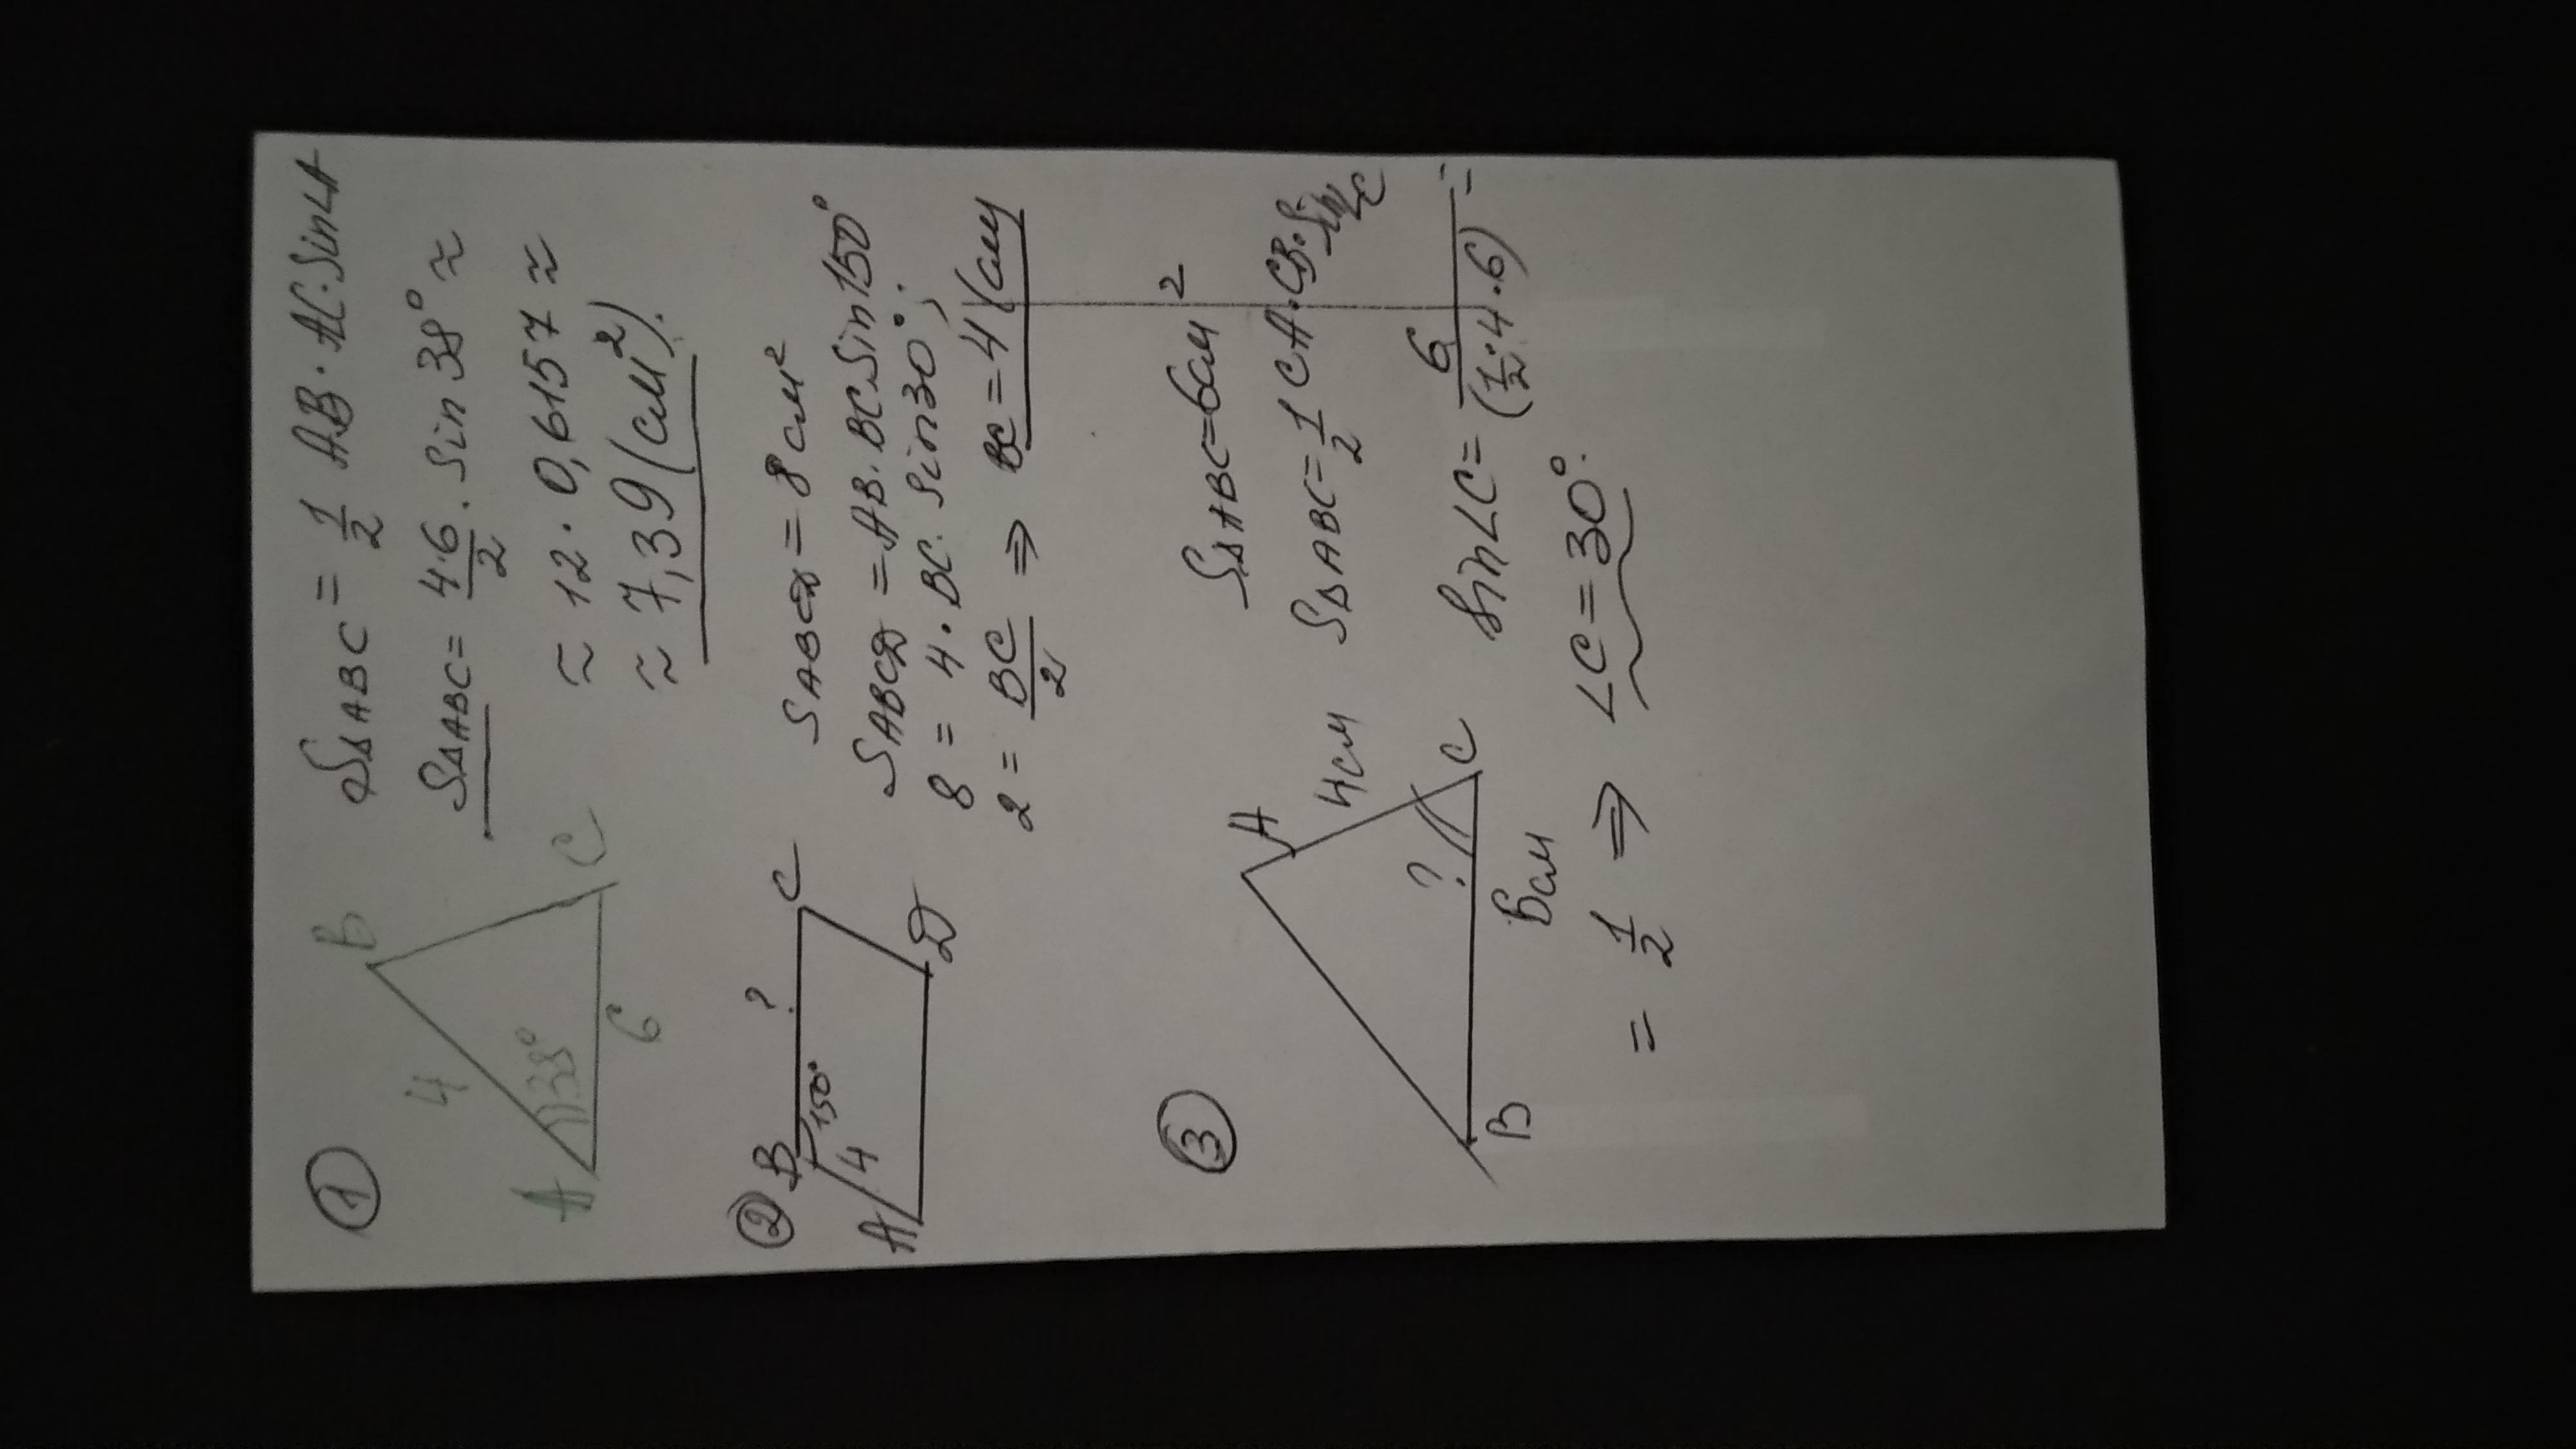 ①
B
4
38°
A
6
C
S△ABC = 1/2 AB · AC · Sin∠A
S△ABC = 4·6/2 · Sin 38° ≈
≈ 12 · 0,6157 ≈
≈ 7,39 (см²).
②
B
?
C
150°
4
A
D
SABCD = 8 см²
SABCD = AB · BC Sin 150°
8 = 4 · BC · Sin 30°;
2 = BC/2 ⇒ BC = 4 (см)
③
A
4см
?
B
C
6см
S△ABC = 6см²
S△ABC = 1/2 CA · CB · Sin∠C
Sin∠C = 6/(1/2 · 4 · 6) =
= 1/2 ⇒ ∠C = 30°.